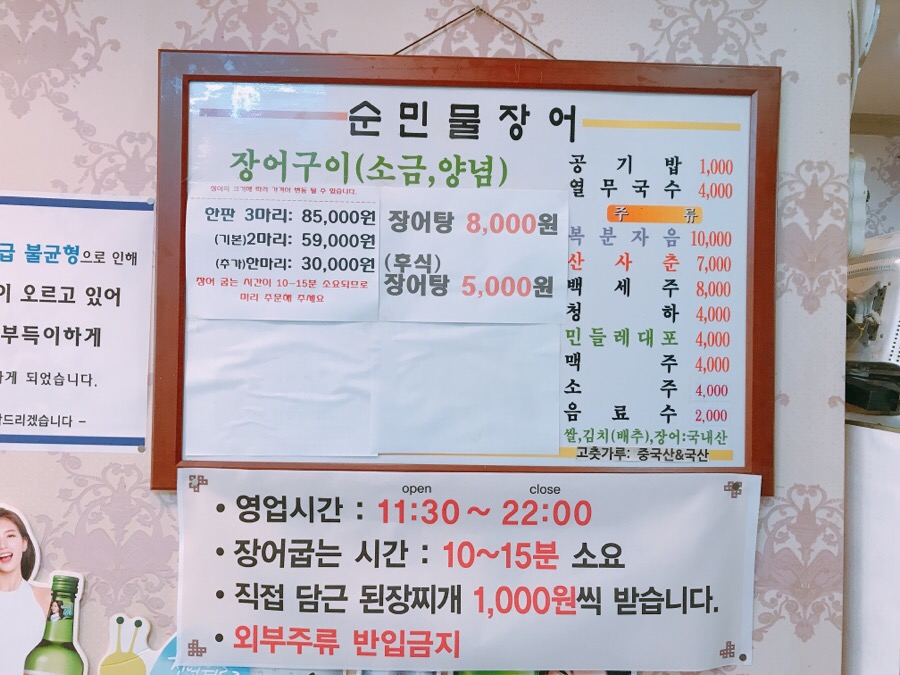 순민물장어
장어구이(소금,양념)
장어의 크기에 따라 가격이 변동 될 수 있습니다.
안판 3마리: 85,000원
(기본)2마리: 59,000원
(추가)한마리: 30,000원
장어 굽는 시간이 10-15분 소요되므로
미리 주문해 주세요
장어탕 8,000원
(후식)
장어탕 5,000원
공기밥 1,000
열무국수 4,000
주류
복분자음 10,000
산사춘 7,000
백세주 8,000
청하 4,000
민들레대포 4,000
맥주 4,000
소주 4,000
음료수 2,000
쌀,김치(배추),장어:국내산
고춧가루: 중국산&국산
급 불균형으로 인해
이 오르고 있어
부득이하게
하게 되었습니다.
드리겠습니다 -
open close
• 영업시간 : 11:30 ~ 22:00
• 장어굽는 시간 : 10~15분 소요
• 직접 담근 된장찌개 1,000원씩 받습니다.
• 외부주류 반입금지